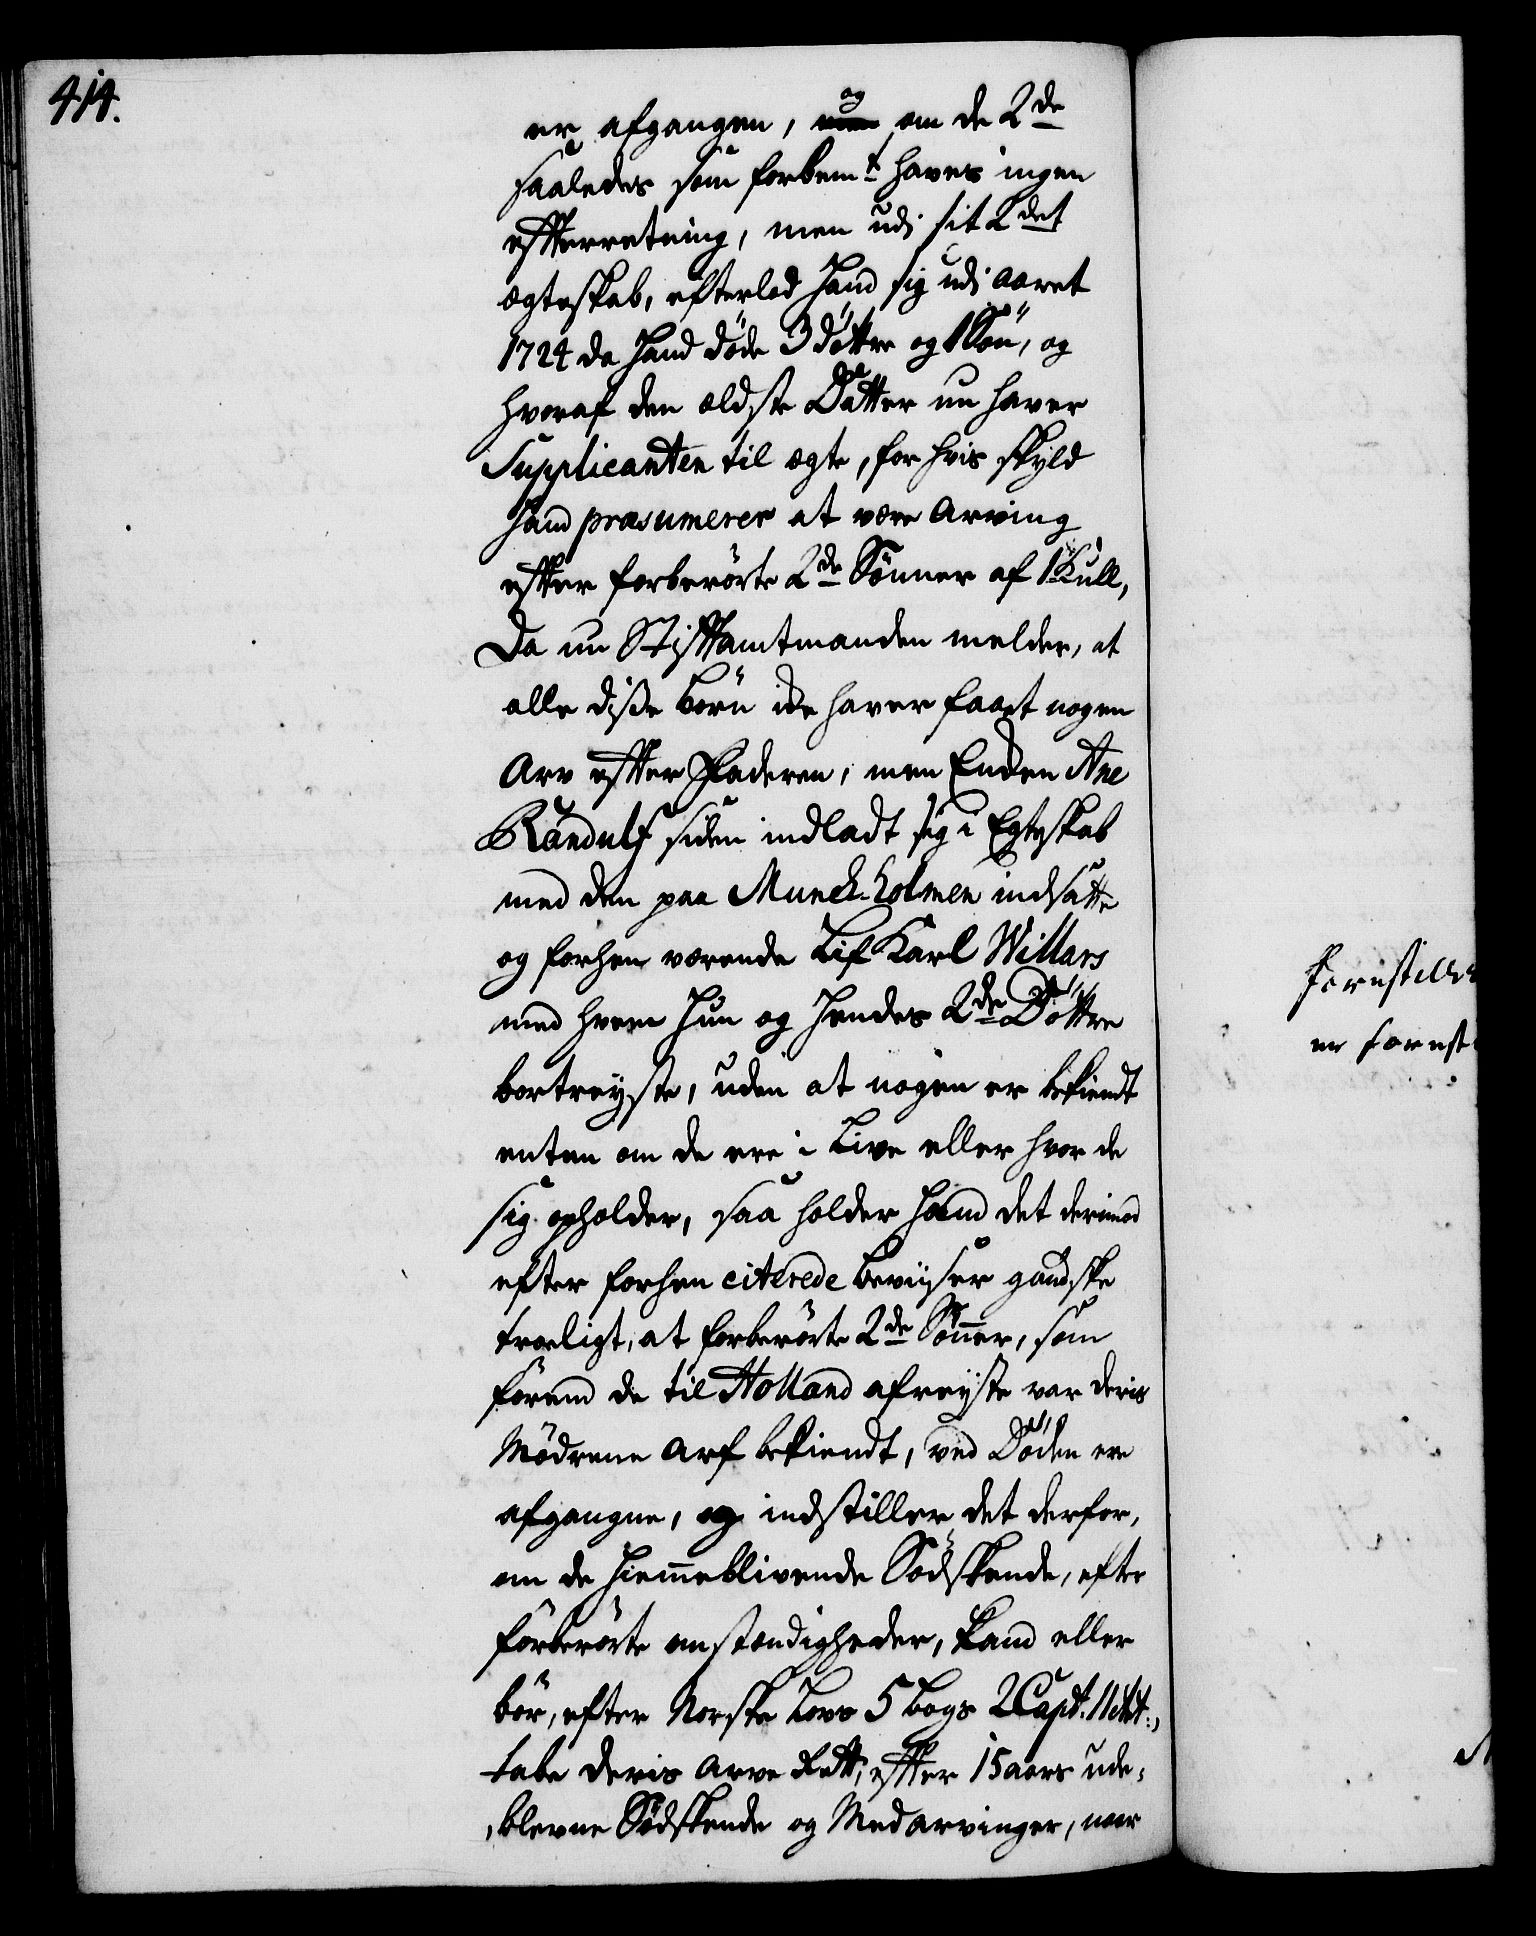 414.
er afgangen, og om de 2de
saaledes som forbemt haves ingen
effterretning, men udi sit 2det
ægteskab, efterlod Hand sig udi aaret
1724 da Hand döde 3 döttre og 1 Sön, og
hvoraf den ældste Datter nu haver
Supplicanten til ægte, for hvis skyld
Hand præsumerer at være Arving
effter forberörte 2de Sönner af 1 Kull,
Da nu Stifftamtmanden melder, at
alle diße börn icke haver faaet nogen
Arv effter Faderen, men Enken Ane
Randulf siden indladt sig i Egteskab
med den paa Munck-holmen indsatte
og forhen værende Lif Karl Willars
med hvem Hun og Hendes 2de Döttre
bortreyste, uden at nogen er bekiendt
enten om de ere i Live eller hvor de
sig opholder, saa holder Hand det derimod
efter forhen citerede beviiser gandske
troeligt, at forberörte 2de Sönner, som
förend de til Holland afreyste var deris
Mödrene Arf bekiendt, ved Döden ere
afgangne, og indstiller det derfor,
om de Hiemmeblivende Södskende, efter
forberörte omstændigheder, kand eller
bör, efter Norske Lovs 5 bogs 2 Capt. 11 Art.,
tabe deris Arve Rett, effter 15 aars ude-
blevne Södskende og Medarvinger, naar
Forestille
er forest